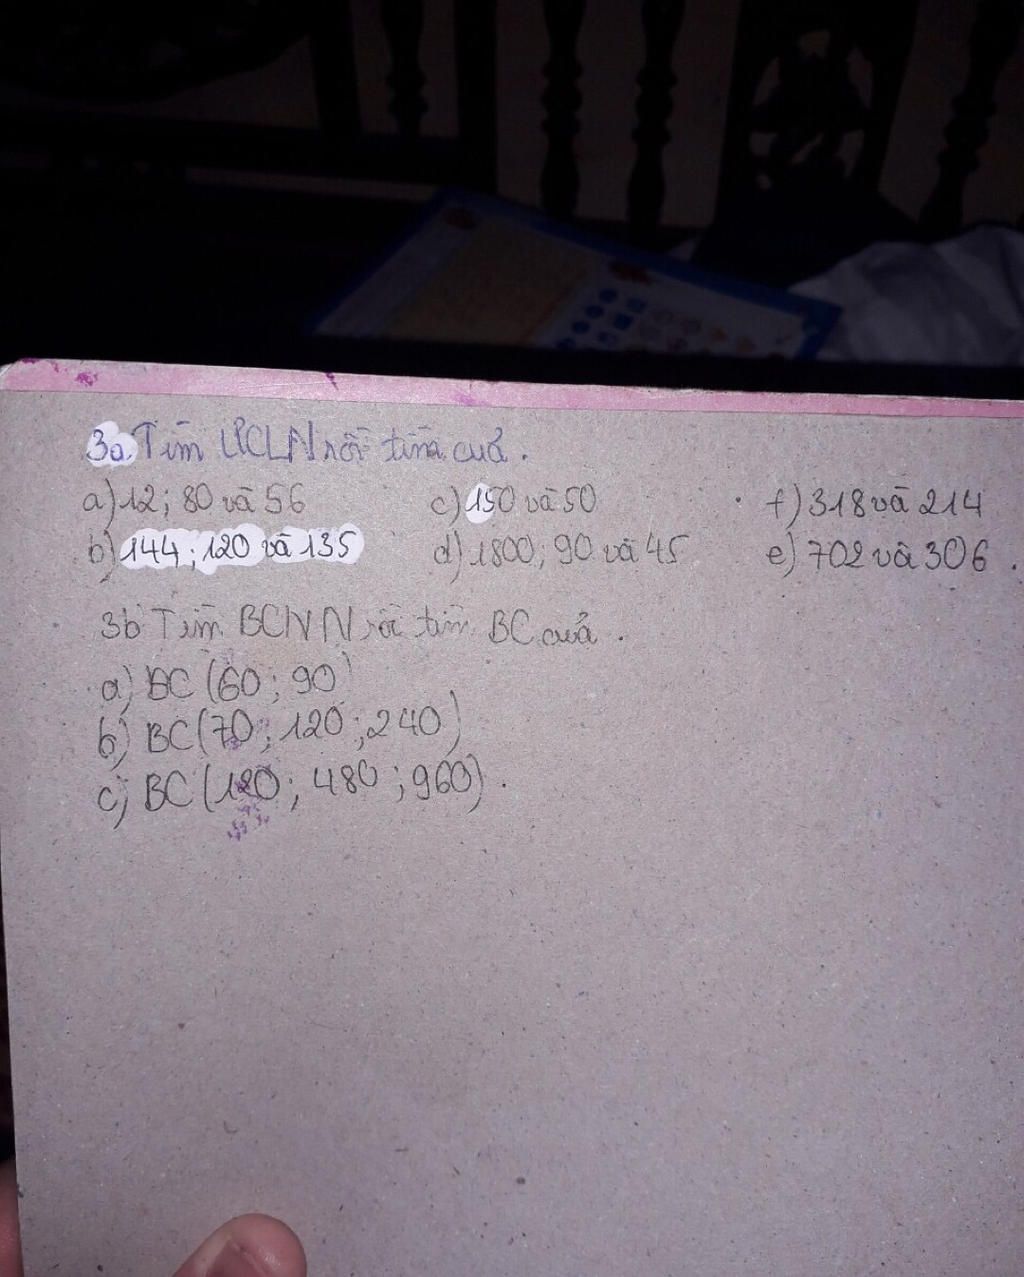 3a Tìm ƯCLN rồi tìm của.
a) 12; 80 và 56 c) 150 và 50 f) 318 và 214
b) 144; 120 và 135 d) 1800; 90 và 45 e) 702 và 306.
3b Tìm BCNN rồi tìm BC của.
a) BC (60; 90)
b) BC (70; 120; 240)
c) BC (120; 480; 960).